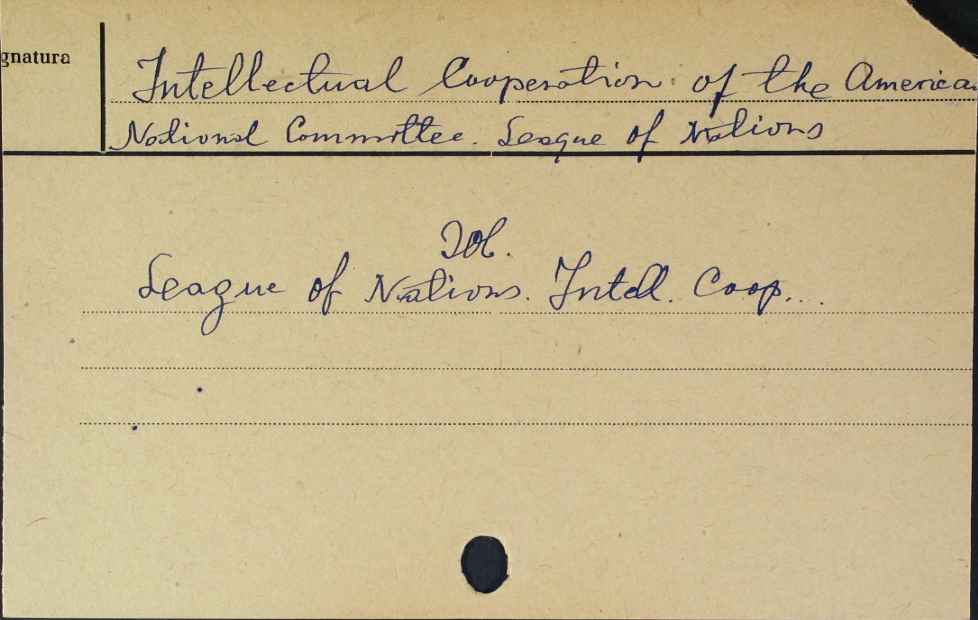 gnatura
Intellectual Cooperation of the America
National Committee. League of Nations
Zob.
League of Nations. Intell. Coop...